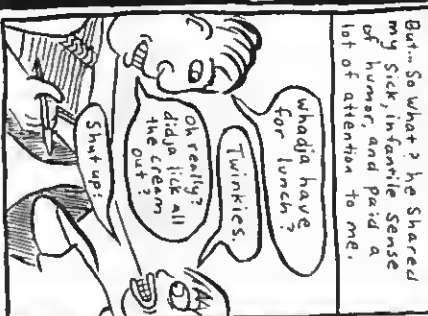 But... So what? he Shared
my sick, infantile sense
of humor, and paid a
lot of attention to me.
whadja have
for lunch?
Twinkies.
Oh really?
didja lick all
the cream
out?
Shut up!